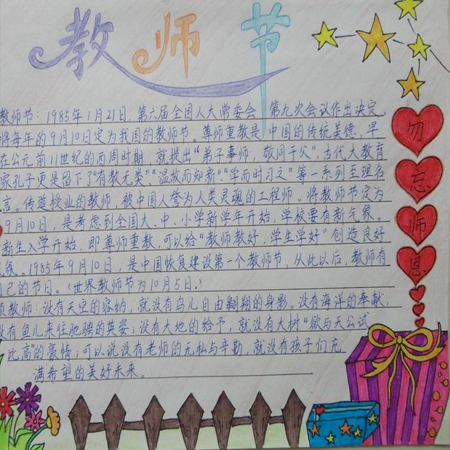 教师节
教师节：1985年1月21日，第六届全国人大常委会 第九次会议作出决定
将每年的9月10日定为我国的教师节。尊师重教是中国的传统美德，早
在公元前11世纪的西周时期，就提出“弟子事师，敬同于父”，古代大教育
家孔子更是留下了“有教无类”“温故而知新”“学而时习之”等一系列至理名
言。传道授业的教师，被中国人誉为人类灵魂的工程师。将教师节定为
9月10日，是考虑到全国大、中、小学新学年开始，学校要有新气象。
新生入学开始，即尊师重教，可以给“教师教好，学生学好”创造良好
气氛。1985年9月10日，是中国恢复建设第一个教师节，从此以后，教师有
自己的节日。（世界教师节为10月5日。）
教师：没有天空的容纳，就没有鸟儿自由翱翔的身影，没有海洋的奉献，
没有鱼儿来往驰骋的英姿；没有大地的给予，就没有大树“欲与天公试
比高”的豪情；可以说没有老师的无私与辛勤，就没有孩子们充
满希望的美好未来。
勿
忘
师
恩